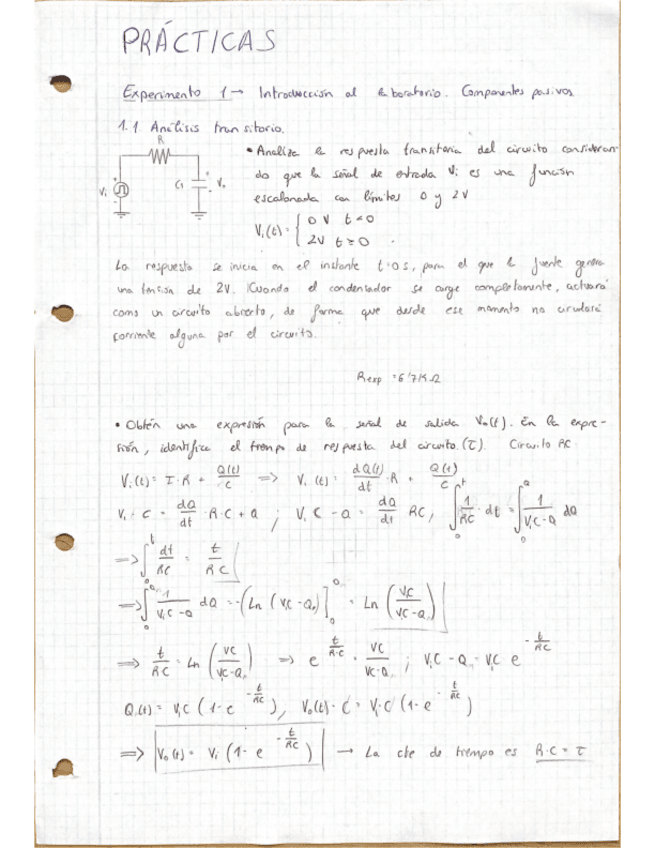 PRÁCTICAS
Experimento 1 → Introducción al laboratorio. Componentes pasivos
1.1 Análisis transitorio.
R
Vi
C1
Vo
• Analiza la respuesta transitoria del circuito consideran-
do que la señal de entrada Vi es una función
escalonada con límites 0 y 2V
Vi(t) = { 0 V t<0
2V t≥0
La respuesta se inicia en el instante t=0s, para el que la fuente genera
una tensión de 2V. Cuando el condensador se carge completamente, actuará
como un circuito abierto, de forma que desde ese momento no circulará
corriente alguna por el circuito.
Rexp = 6'7 KΩ
• Obtén una expresión para la señal de salida Vo(t). En la expre-
sión, identifica el tiempo de respuesta del circuito (τ). Circuito RC
Vi(t) = I·R + Q(t)/C => Vi(t) = dQ(t)/dt · R + Q(t)/C
Vi·C = dQ/dt · R·C + Q ; ViC - Q = dQ/dt RC, ∫₀ᵗ 1/RC · dt = ∫₀Q 1/(ViC-Q) dQ
=> ∫₀ᵗ dt/RC = t/RC
=> ∫₀Q 1/(ViC-Q) dQ = -(Ln (ViC-Q)]₀Q = Ln (ViC/(ViC-Q))
=> t/RC = Ln (ViC/(ViC-Q)) => e^(t/R·C) = ViC/(ViC-Q) ; ViC - Q = ViC e^(-t/RC)
Q(t) = ViC (1-e^(-t/RC)), Vo(t)·C = Vi·C (1-e^(-t/RC))
=> Vo(t) = Vi (1-e^(-t/RC)) → La cte de tiempo es R·C = τ